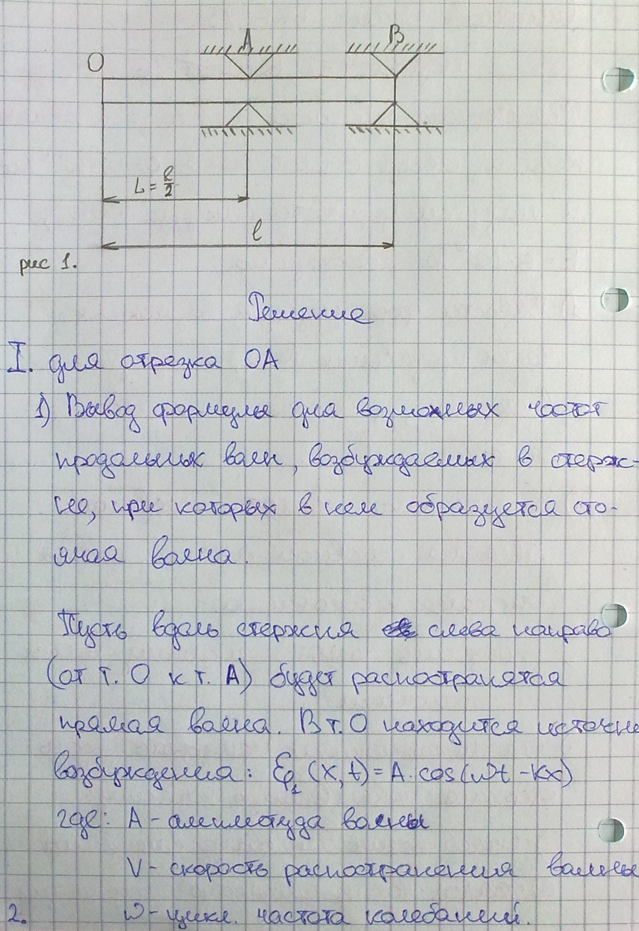 A
B
O
L = ℓ/2
ℓ
рис 1.
Решение
I. для отрезка OA
1) Вывод формулы для возможных частот
продольных волн, возбуждаемых в стерж-
не, при которых в нем образуется сто-
ячая волна.
Пусть вдоль стержня слева направо
(от т. O к т. A) будет распостранятся
прямая волна. В т. O находится источн
возбуждения: ξ₁(x,t)=A·cos(ωt-kx)
где: A - амплитуда волны
V - скорость распостранения волны
2. ω - цикл. частота колебаний.